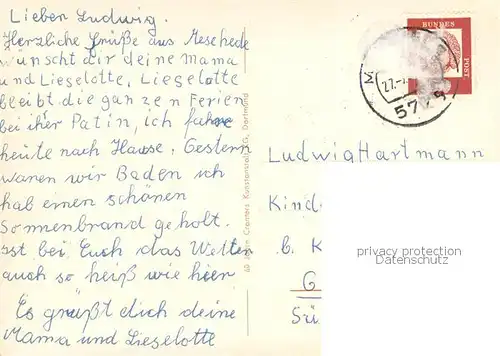 Lieber Ludwig.
Herzliche Grüße aus Meschede
wünscht dir deine Mama
und Lieselotte, Lieselotte
bleibt die ganzen Ferien
bei ihrer Patin, ich fahre
heute nach Hause. Gestern
waren wir Baden ich
hab einen schönen
Sonnenbrand geholt.
Ist bei Euch das Wetter
auch so heiß wie hier
Es grüßt dich deine
Mama und Lieselotte
60 Jahre Cramers Kunstanstalt KG, Dortmund
BUNDES
POST
27.-7.
5779
Ludwig Hartmann
Kind
b. K
G
Sü
privacy protection
Datenschutz